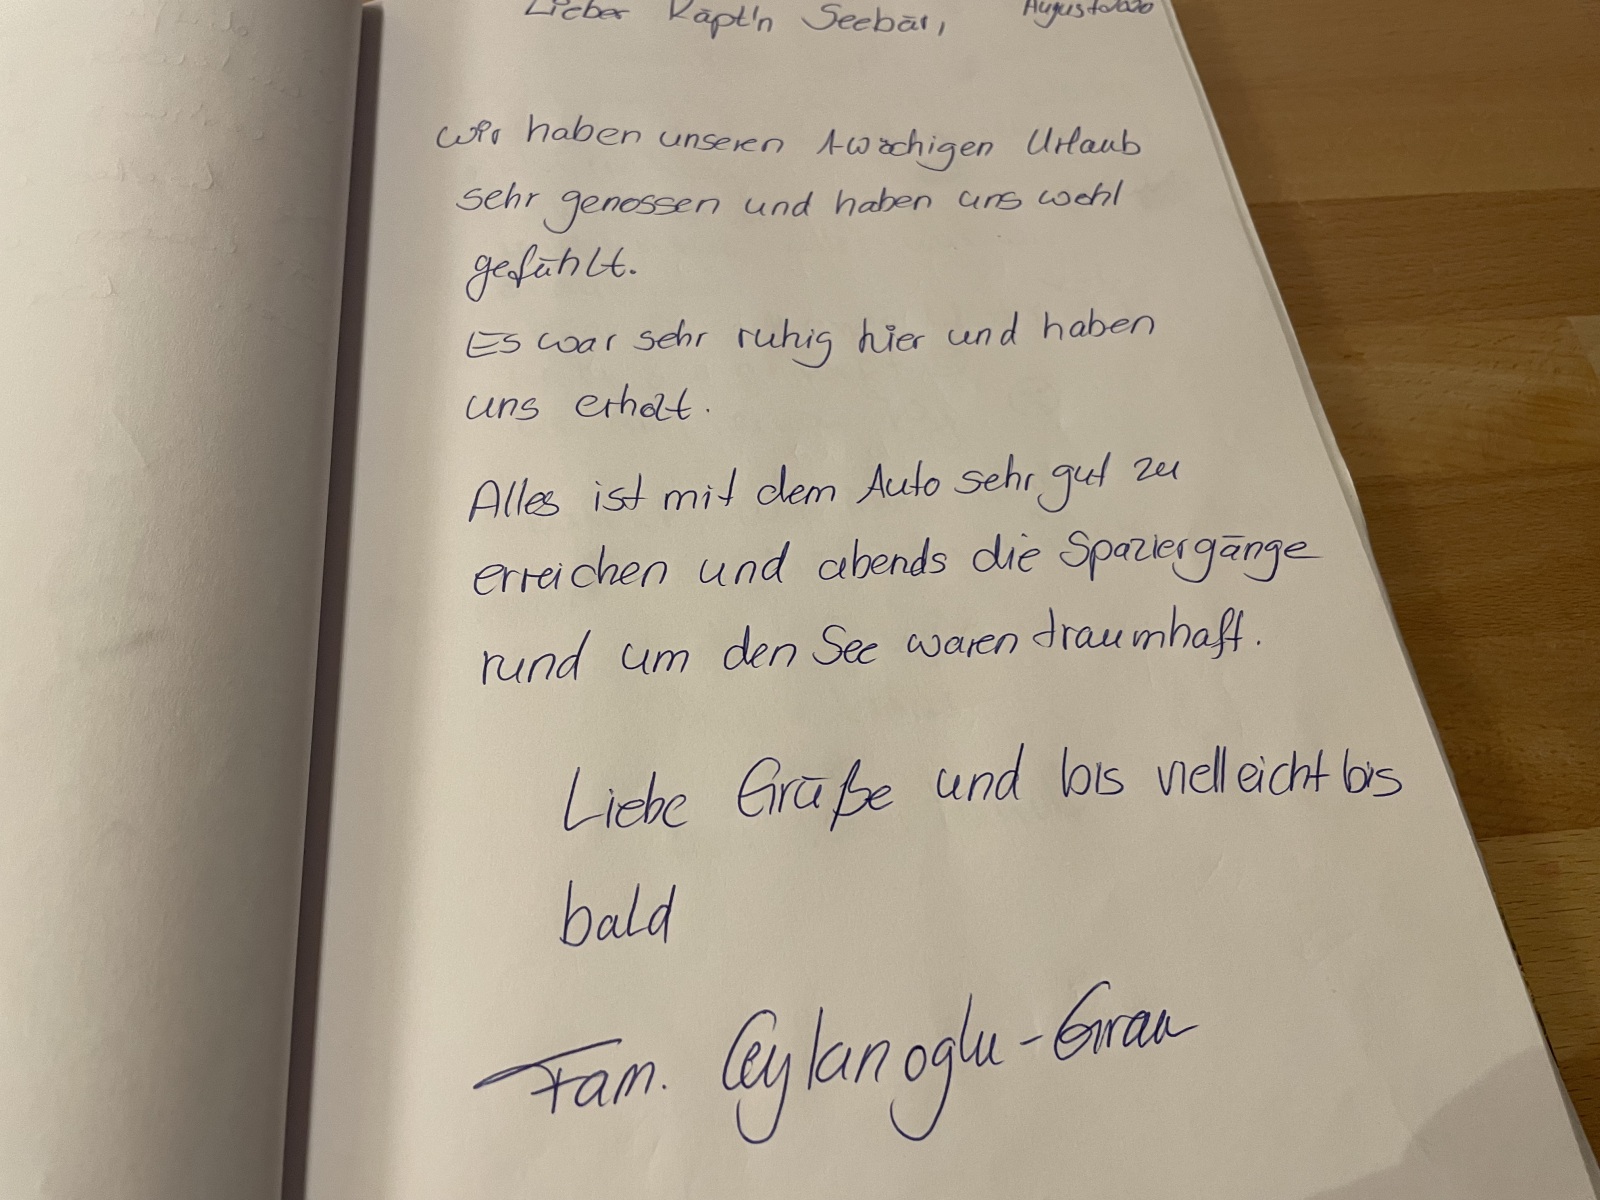 Lieber Käpt'n Seebär, August 2020
wir haben unseren 1-wöchigen Urlaub
sehr genossen und haben uns wohl
gefühlt.
Es war sehr ruhig hier und haben
uns erholt.
Alles ist mit dem Auto sehr gut zu
erreichen und abends die Spaziergänge
rund um den See waren traumhaft.
Liebe Grüße und bis vielleicht bis
bald
Fam. Ceylanoglu-Grau